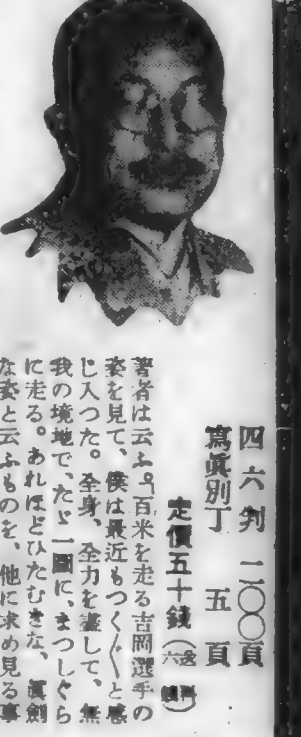 四六判 二〇〇頁
寫眞別丁 五頁
定價五十錢（送料六錢）
著者は云ふ。「百米を走る吉岡選手の
姿を見て、僕は最近もつく〲と感
じ入つた。全身、全力を盡して、無
我の境地で、たゞ一圖に、まつしぐら
に走る。あれほどひたむきな、眞劍
な姿と云ふものを、他に求め見る事